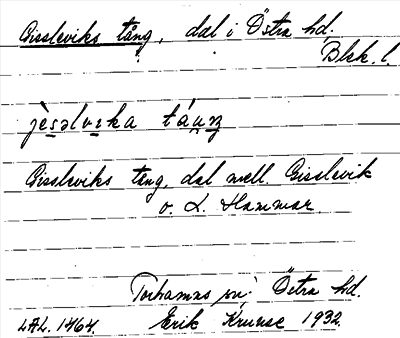 Gissleviks tång, dal i Östra hd.
Blek. l.
jèsəlvɪka táuŋ
Gissleviks tång, dal mell. Gisslevik
o. L. Hammar
Torhamns sn; Östra hd.
LAL. 1464. Erik Kruuse 1932.